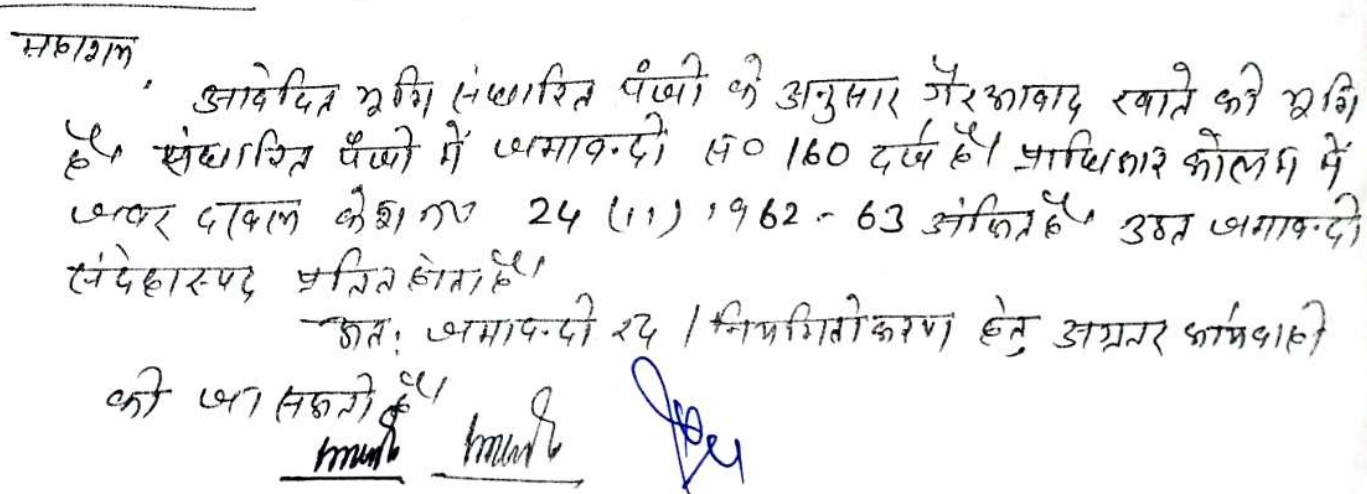 महाशय,
आवेदित भूमि संधारित पंजी के अनुसार गैरआबाद खाते की भूमि
है। संधारित पंजी में जमाबन्दी सं० 160 दर्ज है। प्राधिकार कोलम में
दाखिल केश नं० 24 (11) 1962-63 अंकित है। उक्त जमाबन्दी
संदेहास्पद प्रतित होता है।
अत: जमाबन्दी रद्द / नियमितीकरण हेतु अग्रतर कार्यवाही
की जा सकती है।